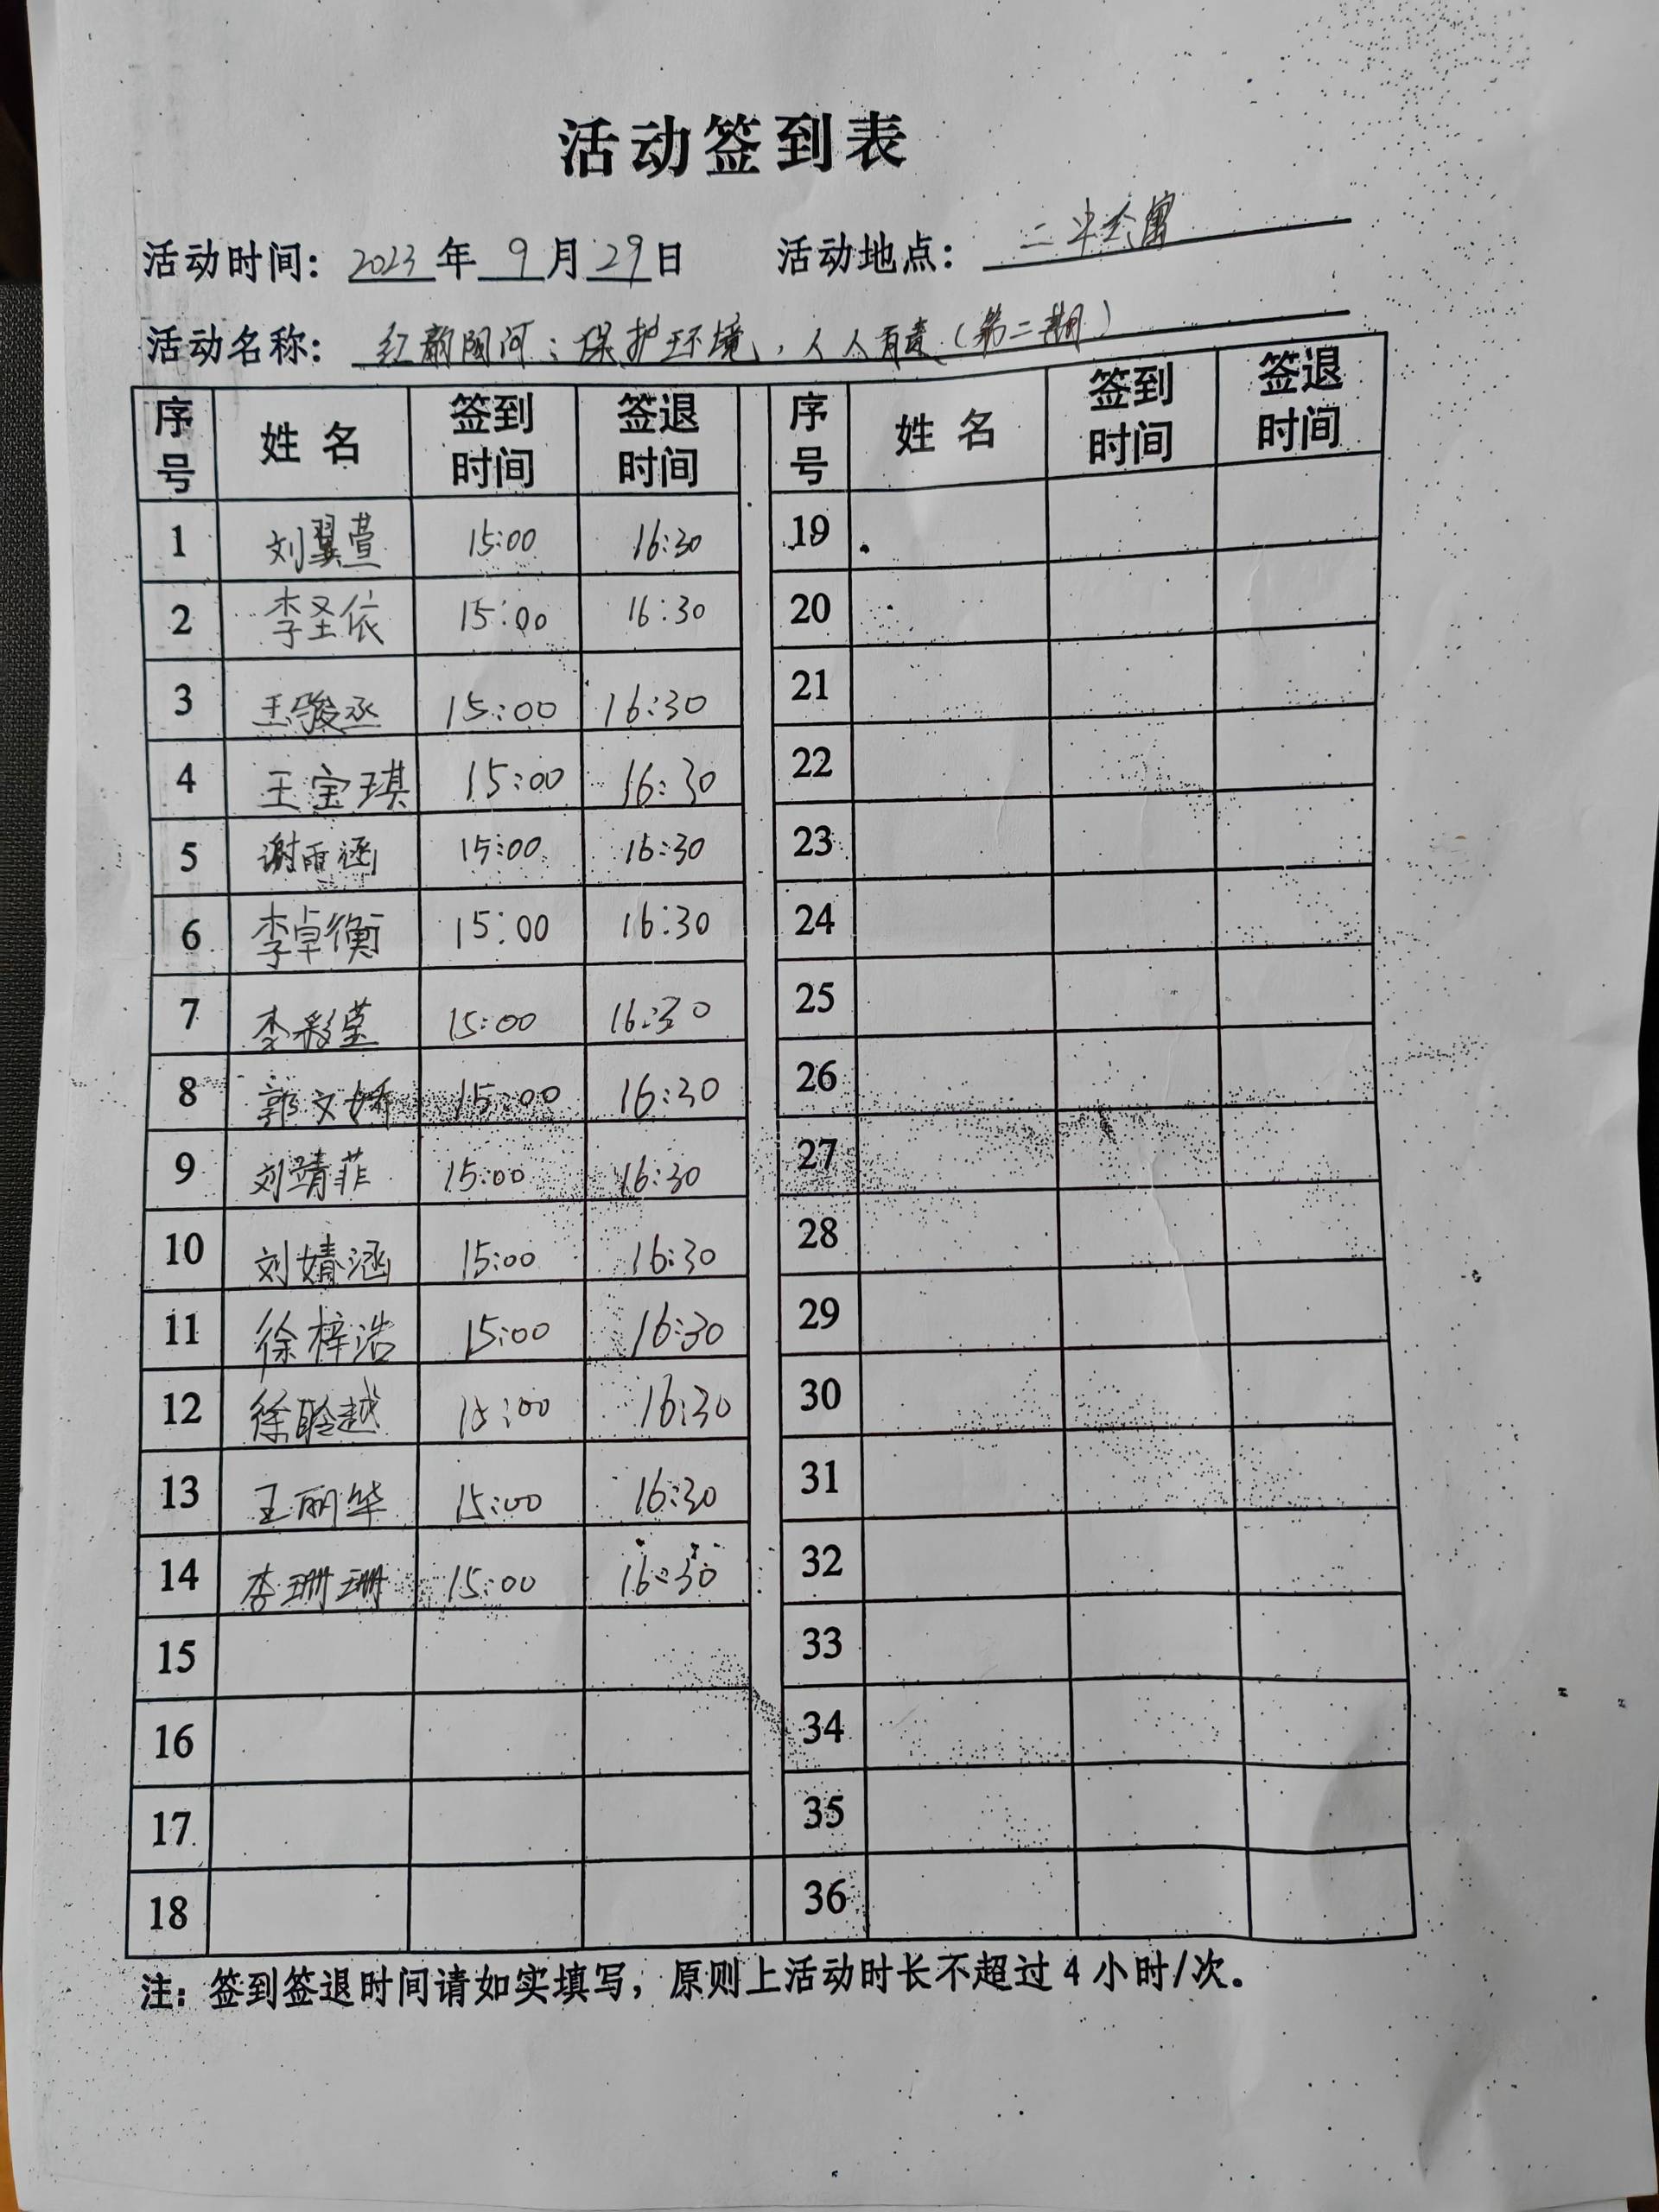 活动签到表
活动时间：2023年9月29日 活动地点：二中公寓
活动名称：红韵阁河：保护环境，人人有责（第二期）
序号 姓名 签到时间 签退时间 序号 姓名 签到时间 签退时间
1 刘翼萱 15:00 16:30 19
2 李圣依 15:00 16:30 20
3 王骏丞 15:00 16:30 21
4 王宝琪 15:00 16:30 22
5 谢雨涵 15:00 16:30 23
6 李卓衡 15:00 16:30 24
7 李彩莹 15:00 16:30 25
8 郭文娇 15:00 16:30 26
9 刘靖菲 15:00 16:30 27
10 刘婧涵 15:00 16:30 28
11 徐梓浩 15:00 16:30 29
12 徐聆越 15:00 16:30 30
13 王丽华 15:00 16:30 31
14 李珊珊 15:00 16:30 32
15 33
16 34
17 35
18 36
注：签到签退时间请如实填写，原则上活动时长不超过4小时/次。